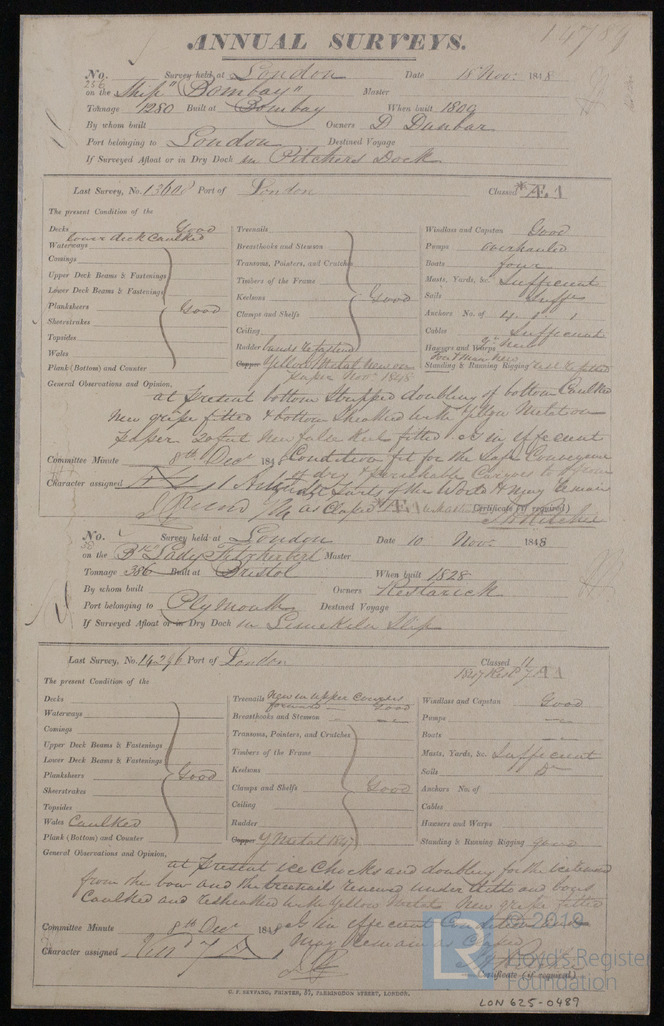 14789
ANNUAL SURVEYS.
No. 286 Survey held at London Date 18 Nov: 1848
on the Ship "Bombay" Master
Tonnage 1280 Built at Bombay When built 1809
By whom built Owners D Dunbar
Port belonging to London Destined Voyage
If Surveyed Afloat or in Dry Dock in Pitchers Dock
Last Survey, No. 13608 Port of London Classed Æ.1
The present Condition of the
Decks Good
lower deck Caulked
Waterways
Comings
Upper Deck Beams & Fastenings
Lower Deck Beams & Fastenings
Planksheers Good
Sheerstrakes
Topsides
Wales
Plank (Bottom) and Counter
Treenails
Breasthooks and Stemson
Transoms, Pointers, and Crutches
Timbers of the Frame
Keelsons Good
Clamps and Shelfs
Ceiling
Rudder
Copper Yellow Metal New on
paper Nov 1848
Windlass and Capstan Good
Pumps overhauled
Boats four
Masts, Yards, &c. Sufficient
Sails Suffi
Anchors No. of 4 . 1 . 1
Cables Sufficient
Hawsers and Warps
Standing & Running Rigging
General Observations and Opinion,
at present bottom stripped doubling of bottom Caulked
New gripe fitted & bottom Sheathed with Yellow Metal on
paper New false keel fitted. is in efficient
Condition fit for the Safe Conveyance
Committee Minute 8th Decr 1848
of dry & perishable Cargoes to & from
Character assigned
all Parts of the World & may remain
as Classed Æ 1
Certificate (if required)
No. Survey held at London Date 10 Nov. 1848
on the Lady Master
Tonnage 386 Built at Bristol When built 1828
By whom built Owners Restarick
Port belonging to Plymouth Destined Voyage
If Surveyed Afloat or in Dry Dock in Limekiln Slip
Last Survey, No. 14296 Port of London Classed
The present Condition of the
Decks
Waterways
Comings
Upper Deck Beams & Fastenings
Lower Deck Beams & Fastenings
Planksheers Good
Sheerstrakes
Topsides
Wales Caulked
Plank (Bottom) and Counter
Treenails New in upper
forward Good
Breasthooks and Stemson
Transoms, Pointers, and Crutches
Timbers of the Frame
Keelsons
Clamps and Shelfs Good
Ceiling
Rudder
Copper Y Metal 1847
Windlass and Capstan Good
Pumps
Boats
Masts, Yards, &c Sufficient
Sails Do
Anchors No. of
Cables
Hawsers and Warps
Standing & Running Rigging good
General Observations and Opinion,
at present ice Chocks and doubling for the ice
from the bow and the treenails renewed under and bows
Caulked and resheathed with Yellow Metal New gripe fitted
Committee Minute 8th Decr 1848 is in efficient Condition and
may remain as Classed
Character assigned
Certificate (if required)
G. F. SEYFANG, PRINTER, 57, FARRINGDON STREET, LONDON.
LON 625-0489
LR
© 2019
Lloyd's Register
Foundation